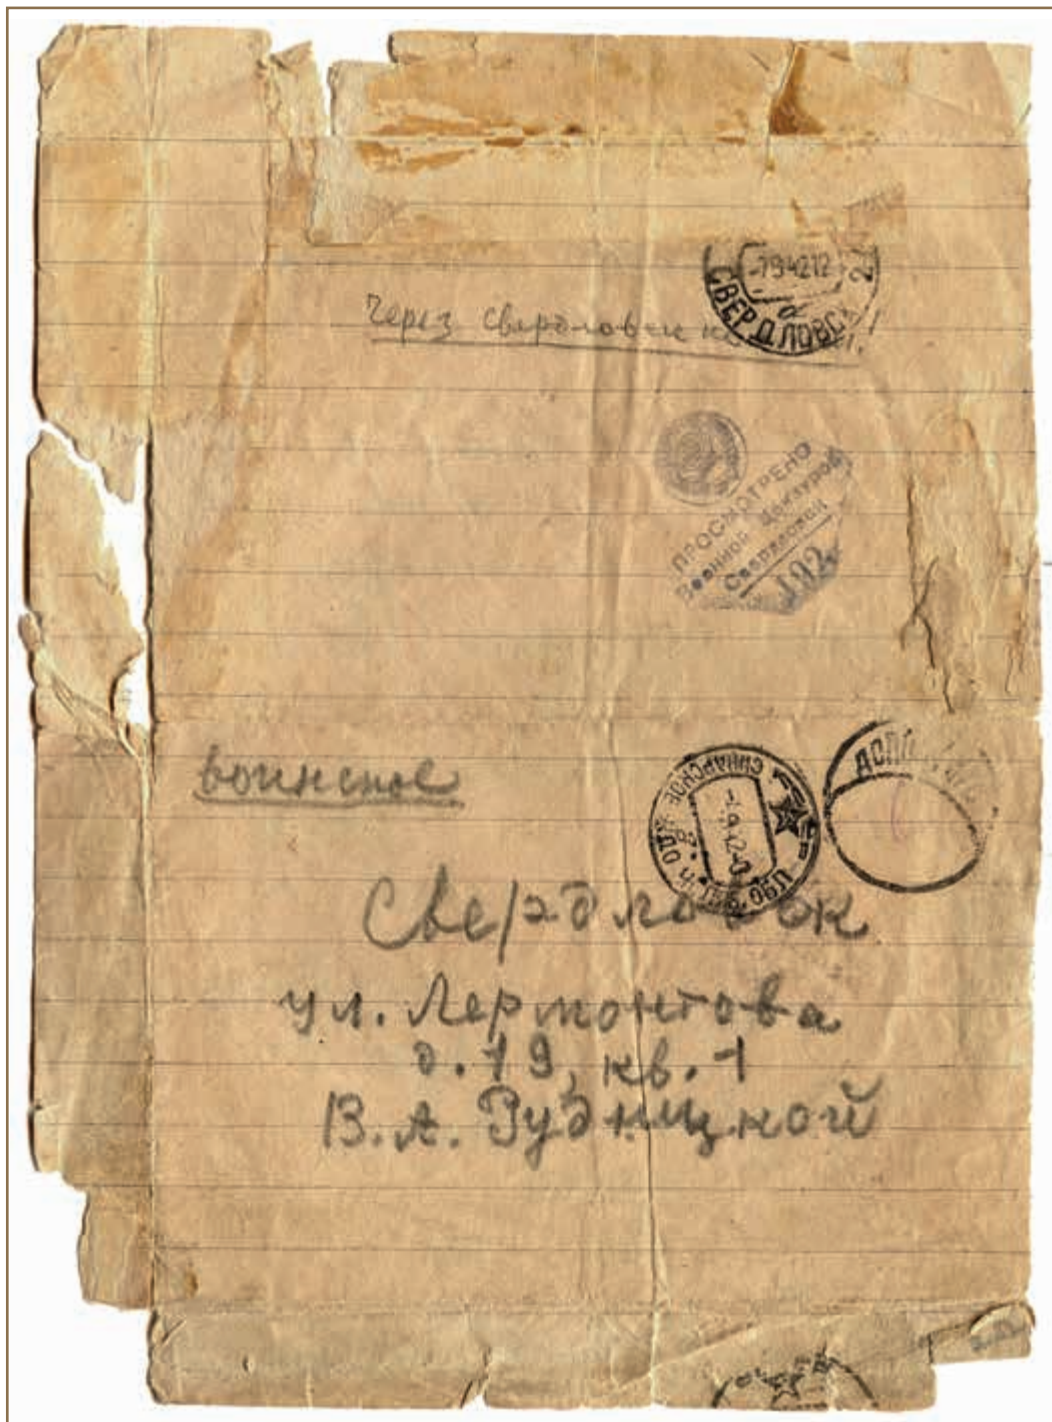 -794212
СВЕРДЛОВСК
Через Свердловск
ПРОСМОТРЕНО
Военной Цензурой
Свердловск
192
воинское
СИНАРСКОЕ
ОБЛ
Свердловск
ул. Лермонтова
д. 19, кв. 1
В. А. Рудницкой